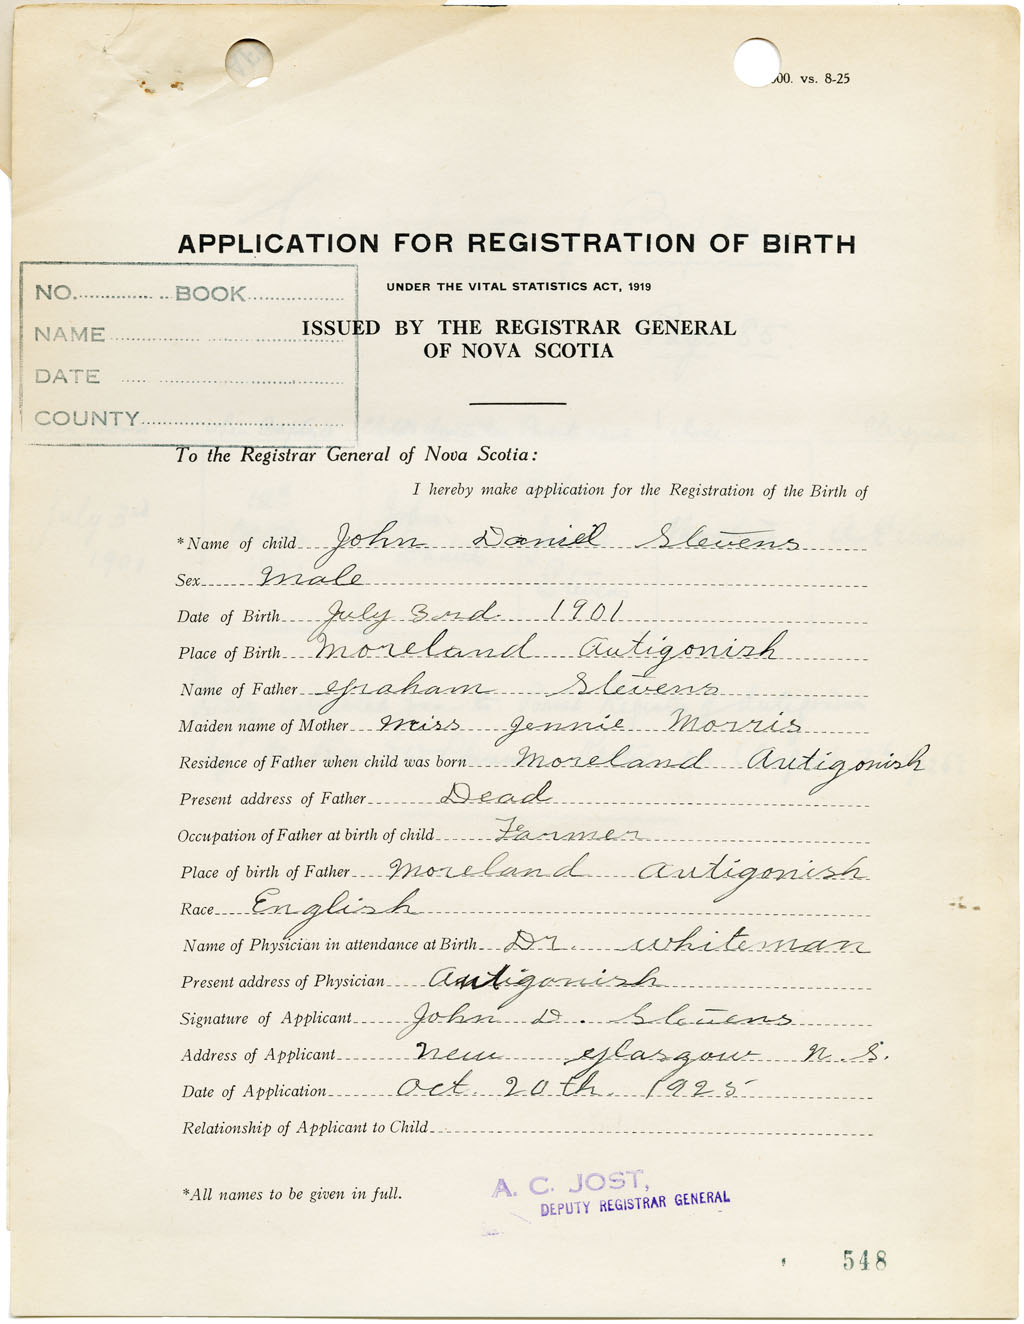 00. vs. 8-25
APPLICATION FOR REGISTRATION OF BIRTH
UNDER THE VITAL STATISTICS ACT, 1919
ISSUED BY THE REGISTRAR GENERAL
OF NOVA SCOTIA
NO. BOOK
NAME
DATE
COUNTY
To the Registrar General of Nova Scotia:
I hereby make application for the Registration of the Birth of
*Name of child John Daniel Stevens
Sex Male
Date of Birth July 3rd 1901
Place of Birth Moreland Antigonish
Name of Father Graham Stevens
Maiden name of Mother Miss Jennie Morris
Residence of Father when child was born Moreland Antigonish
Present address of Father Dead
Occupation of Father at birth of child Farmer
Place of birth of Father Moreland Antigonish
Race English
Name of Physician in attendance at Birth Dr. Whiteman
Present address of Physician Antigonish
Signature of Applicant John D. Stevens
Address of Applicant New Glasgow N.S.
Date of Application Oct. 20th. 1925
Relationship of Applicant to Child
*All names to be given in full.
A. C. JOST,
DEPUTY REGISTRAR GENERAL
548